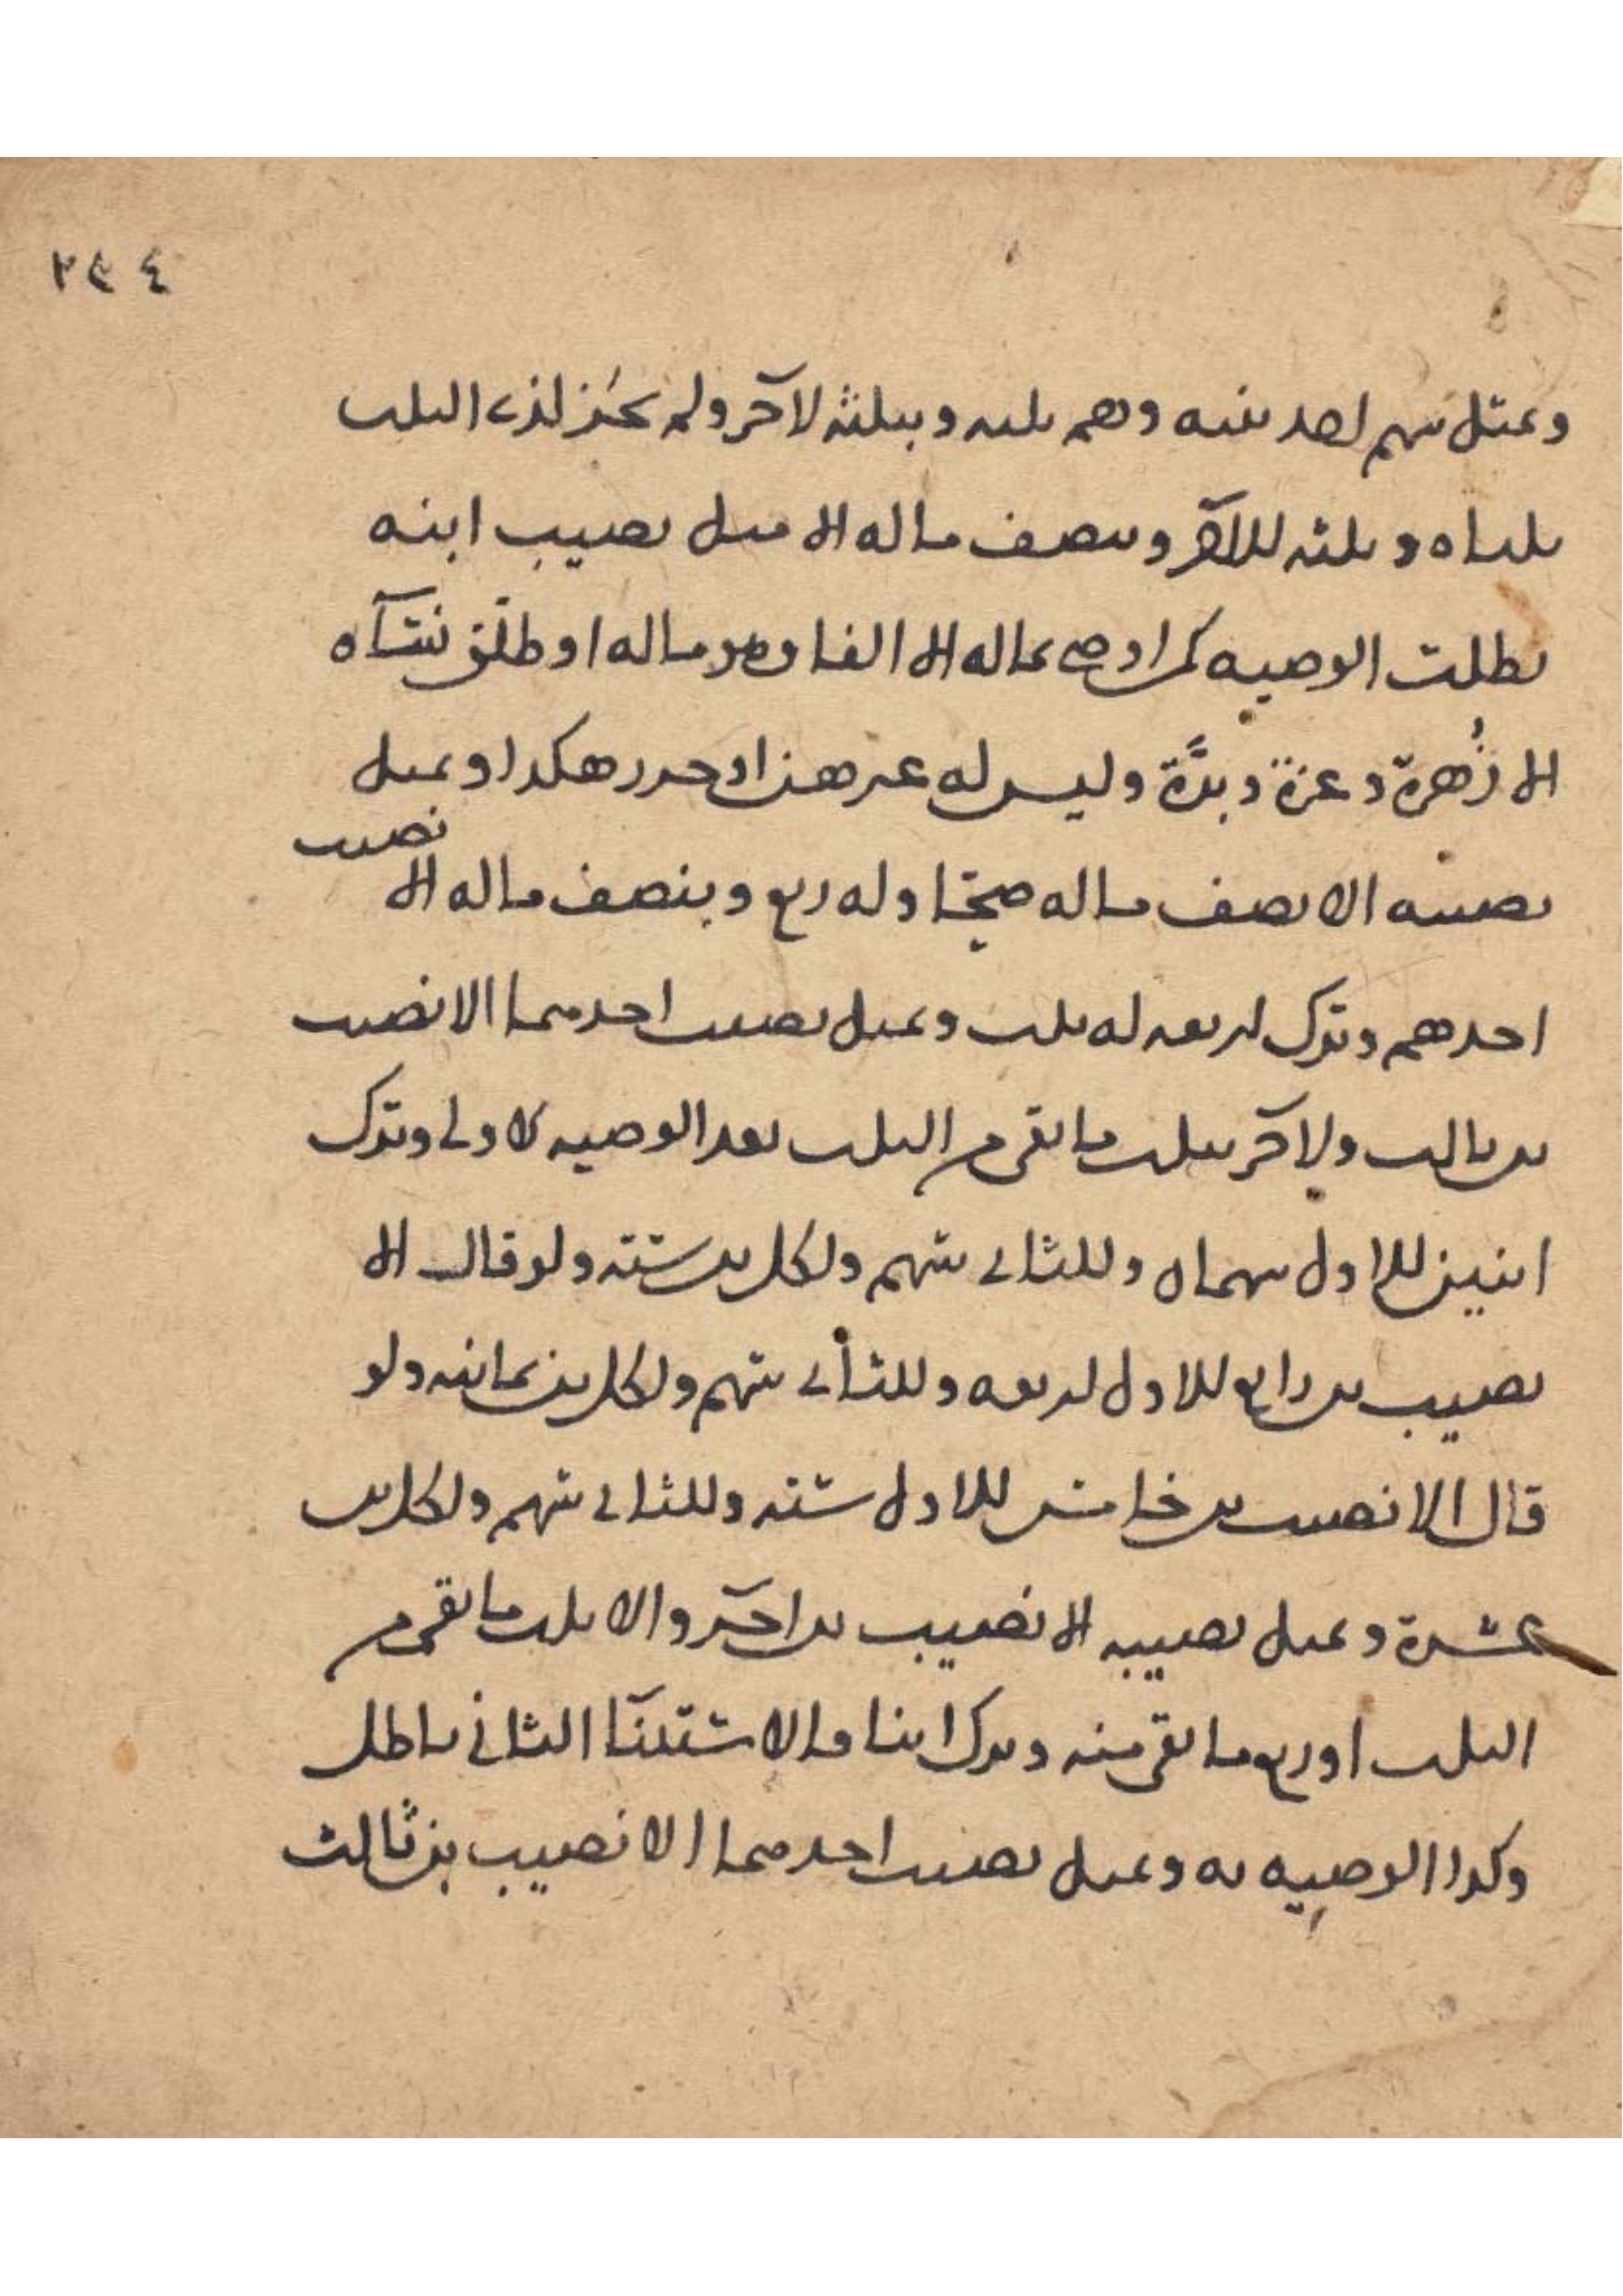 ٢٣٤
وبمثل سهم احد بنيه وهم ثلثه وبثلثه لآخر ولم يجز لذي الثلث
ثلثاه وثلثه للآخر وبنصف ماله الا مثل نصيب ابنه
بطلت الوصيه كمن اوصى بماله الا الفا وهو ماله او طلق نسآه
الا زُهرة وعزة وبدَّة وليس له غير هن او حرر هكذا وبمثل
نصيبه الا نصف ماله صحتا وله ربع وبنصف ماله الا نصيب
احدهم وترك اربعه له ثلث وبمثل نصيب احدهما الا نصيب
بن ثالث ولآخر بثلث ما بقى من الثلث بعد الوصيه الاولى وترك
ابنين للاول سهمان وللثاني سهم ولكل بن ستته ولو قال الا
نصيب بن رابع للاول اربعه وللثاني سهم ولكل بن ثمانيه ولو
قال الا نصيب بن خامس للاول سته وللثاني سهم ولكل بن
عشرة وبمثل نصيبه الا نصيب بن اخر والا ثلث ما بقى من
الثلث او ربع ما بقى منه وترك ابنا فالاستثنآ الثاني باطل
وكذا الوصيه به وبمثل نصيب احدهما الا نصيب بن ثالث